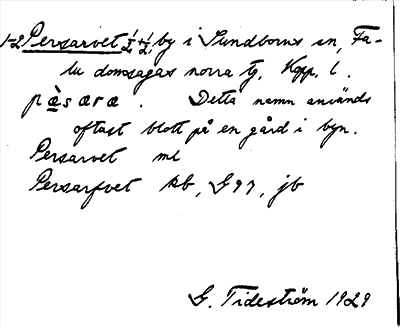 1-2 Persarvet ½+½ by i Sundborns sn, Fa-
lu domsagas norra tg, Kopp. l.
pæ̀særæ. Detta namn används
oftast blott på en gård i byn.
Persarvet ml
Persarfvet kb, G97, jb
G. Tideström 1929